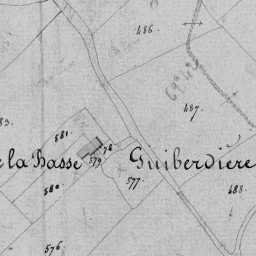 486
487
83.
581
e la Basse
578
579
Guiberdière
577
580
488.
576